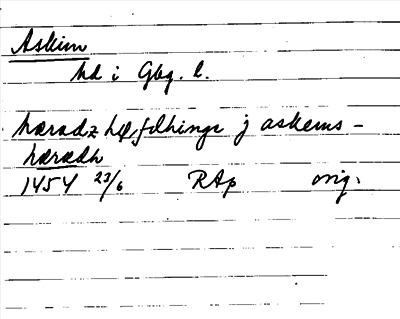 Askim
hd i Gbg. l.
häradz höfdhinge j askems-
härædh
1454 23/6 RAp orig.